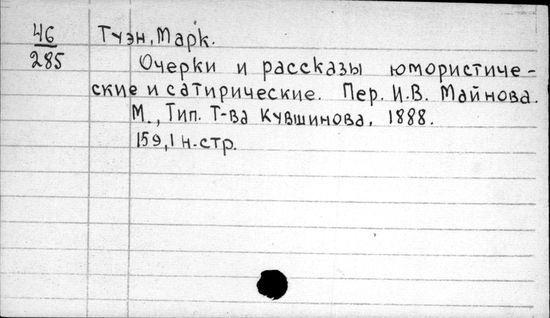 46 Туэн, Марк.
285 Очерки и рассказы юмористиче-
ские и сатирические. Пер. И.В. Майнова.
М., Тип. Т-ва Кувшинова, 1888.
159, 1 н. стр.